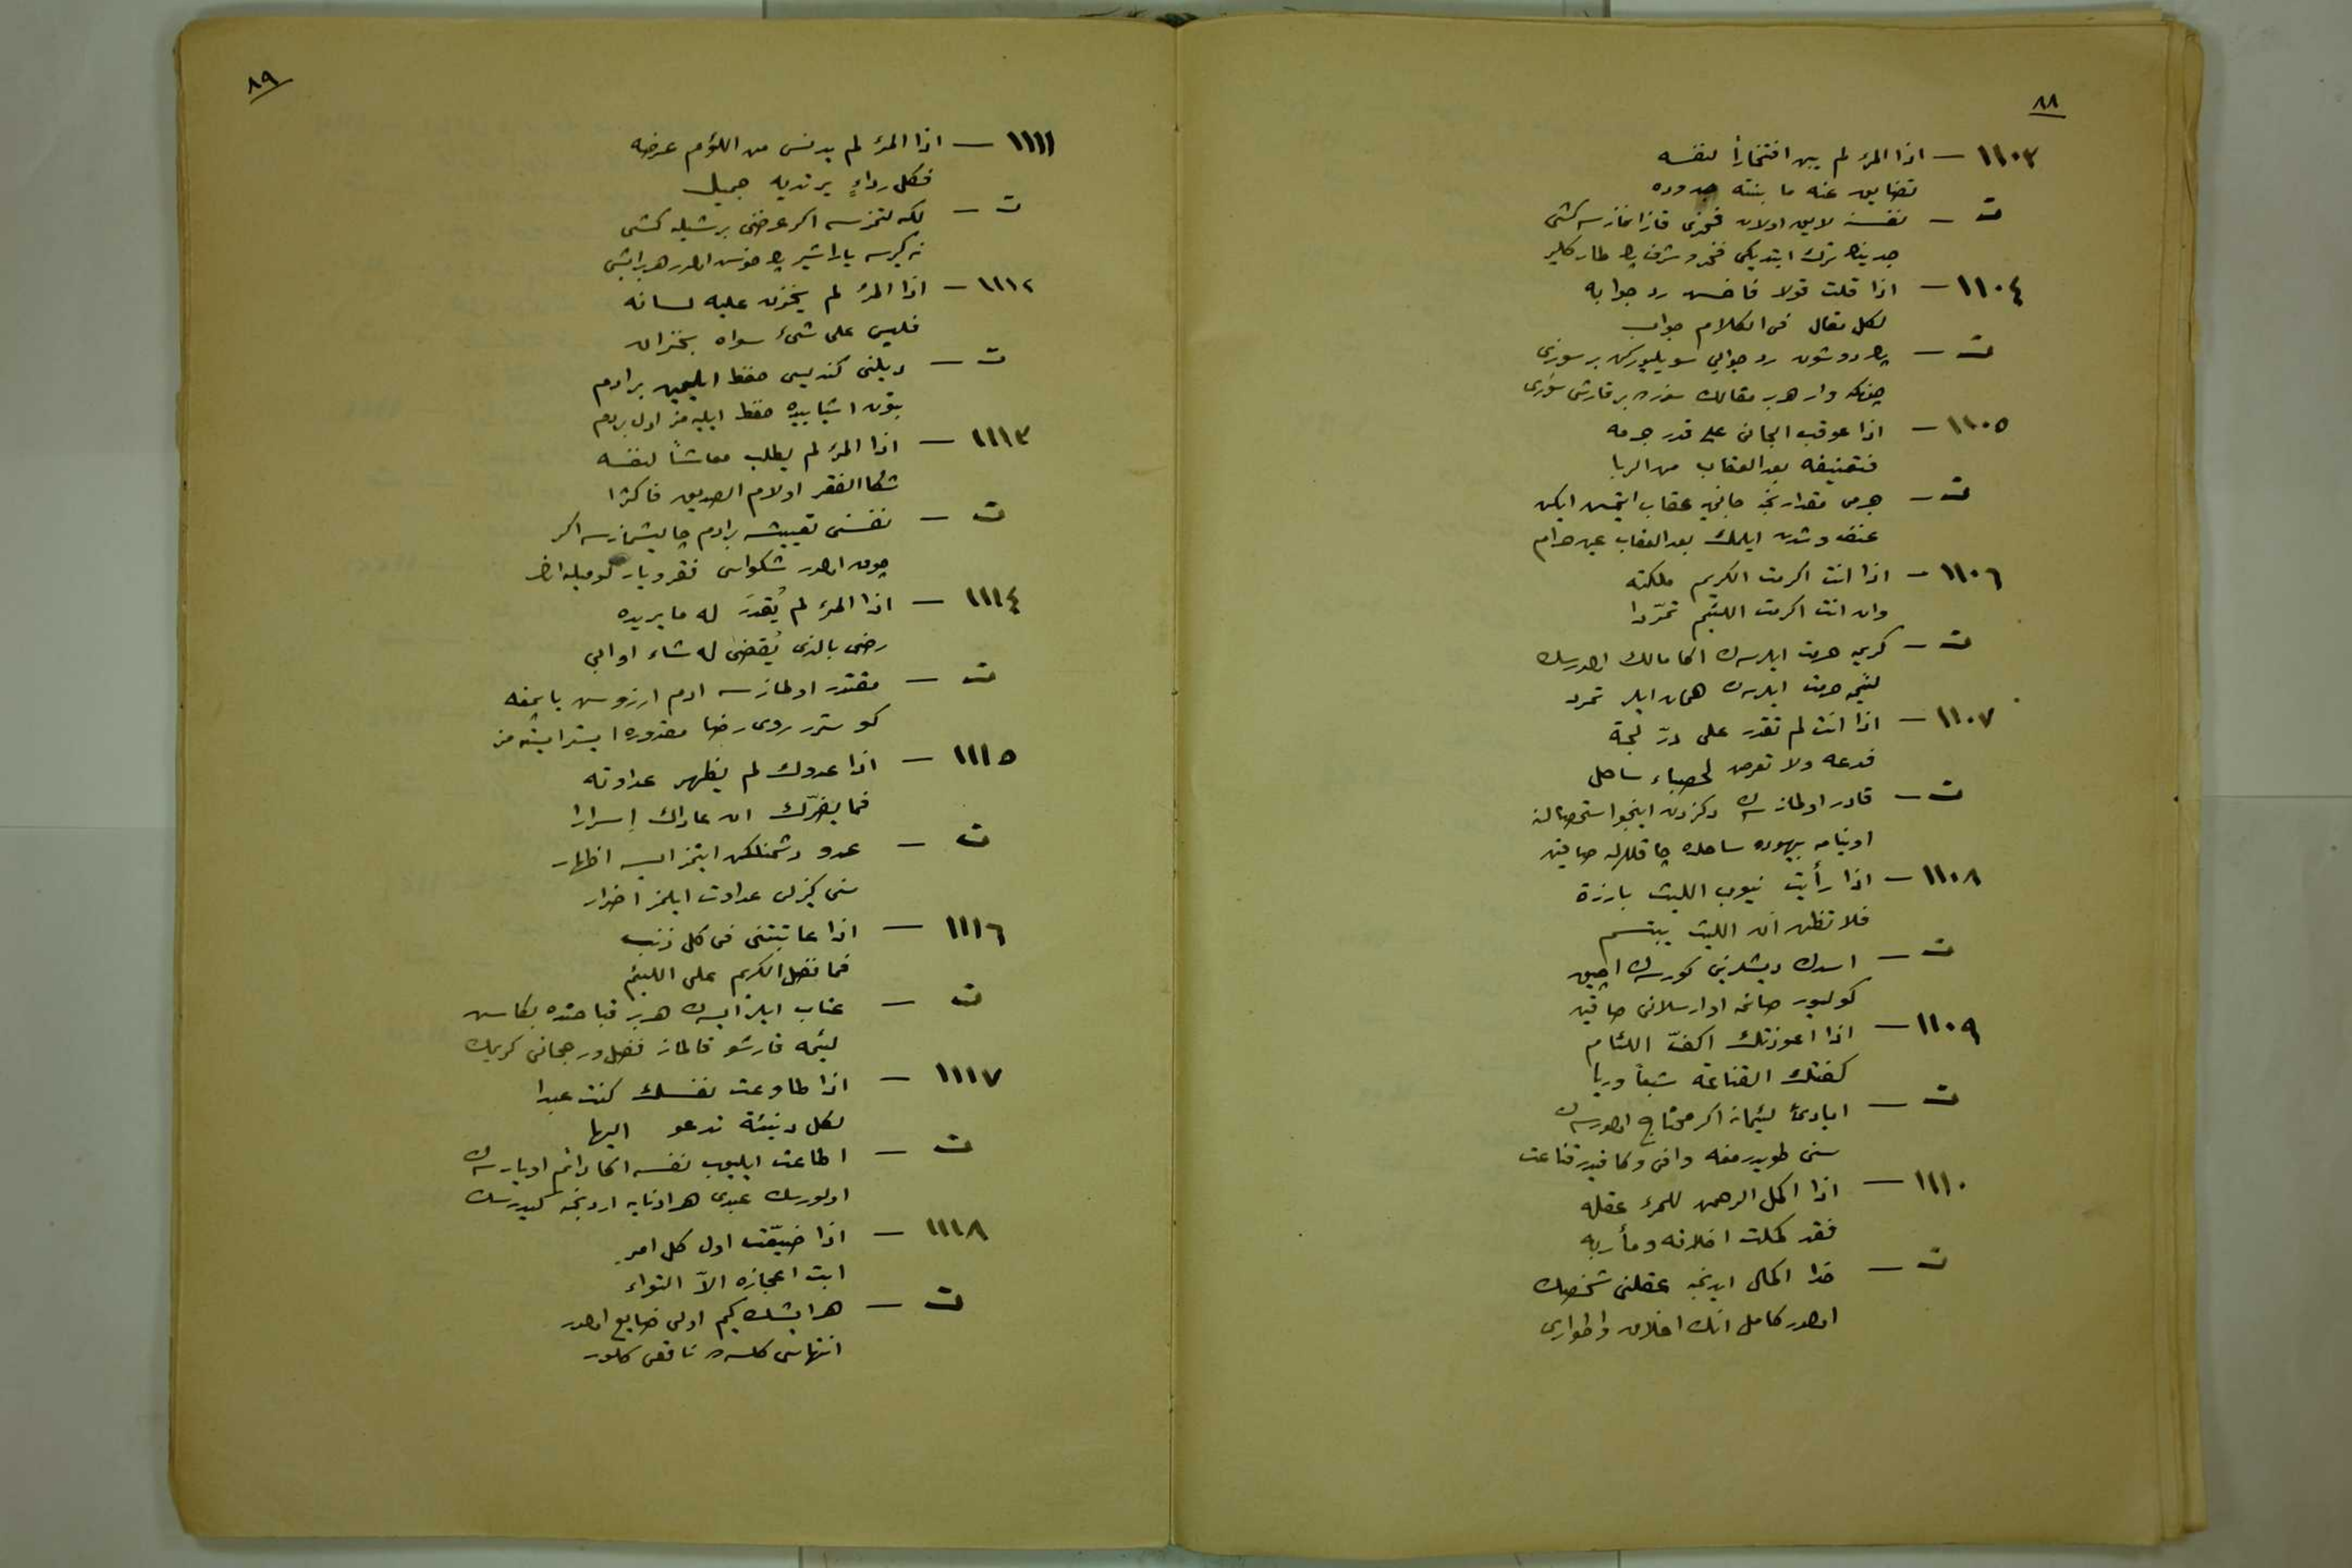 ٨٨
١١٠٣ — اذا المرء لم يبن افتخاراً لنفسه
تضايق عنه ما بنته جدوده
ت — نفسنه لايق اولان فخرى قازانمازسه كشى
جدينك ترك ايتديكى فخر و شرف پك طار كلير
١١٠٤ — اذا قلت قولا فاخش رد جوابه
لكل مقال فى الكلام جواب
ت — پك دوشون رد جوابى سويليوركن بر سوزى
چونكه وار هر بر مقالك سوزده بر قارشى سوزى
١١٠٥ — اذا عوقب الجانى على قدر جرمه
فتعنيفه بعد العقاب من الربا
ت — جرمى مقدارنجه جانىيه عقاب ايتمش ايكن
عنف و شدت ايلمك بعد العقاب عين حرام
١١٠٦ — اذا انت اكرمت الكريم ملكته
وان انت اكرمت اللئيم تمرّدا
ت — كريمه حرمت ايلرسه‌ك اكا مالك اولورسك
لئيمه حرمت ايلرسه‌ك همان ايلر تمرد
١١٠٧ — اذا انت لم تقدر على درّ لجة
فدعه ولا تعرض لحصباء ساحل
ت — قادر اولمازسه‌ك دكزدن اينجو استحصالنه
اوينامه بيهوده ساحلده چاقللرله صاقين
١١٠٨ — اذا رأيت نيوب الليث بارزة
فلا تظنن ان الليث يبتسم
ت — اسدك ديشلرينى كورسه‌ك آچيق
كوليور صانمه او ارسلانى صاقين
١١٠٩ — اذا اعوزتك اكفّ اللئام
كفتك القناعة شبعاً وريا
ت — ايادىء لئيمانه اكر محتاج اولورسه‌ك
سنى طويدرمغه وافى وكافيدر قناعت
١١١٠ — اذا اكمل الرحمن للمرء عقله
فقد كملت اخلاقه ومأربه
ت — خدا اكمال ايدنجه عقلنى شخصك
اولور كامل انك اخلاق واطوارى
٨٩
١١١١ — اذا المرء لم يدنس من اللؤم عرضه
فكل رداءٍ يرتديه جميل
ت — لكه‌لنمزسه اكر عرضى بر شيله كشى
نه كيرسه ياراشير پك خوش اولور هر بر ايشى
١١١٢ — اذا المرء لم يخزن عليه لسانه
فليس على شىء سواه بخزان
ت — ديلنى كنديسى حفظ ايليمين بر ادم
بتون اشيايىده حفظ ايليه‌مز اول بر دم
١١١٣ — اذا المرء لم يطلب معاشاً لنفسه
شكا الفقر او لام الصديق فاكثرا
ت — نفسنى تعييشه بر ادم چاليشمازسه اكر
چوق اولور شكواسى فقر ويار لوميله
١١١٤ — اذا المرء لم يُقدَر له ما يريده
رضى بالذى يُقضى له شاء او ابى
ت — مقتدر اولمازسه ادم ارزوسن ياپمغه
كوسترر روى رضا مقدوره ايستر ايسته‌مز
١١١٥ — اذا عدوك لم يظهر عداوته
فما يضرّك ان عاداك إسرارا
ت — عدو دشمنلكن ايتمز ايسه اظهار
سنى كيزلى عداوت ايلمز اضرار
١١١٦ — اذا عاتبتنى فى كل ذنب
فما فضل الكريم على اللئيم
ت — عتاب ايلر ايسه‌ك هر بر قباحتده بكا سن
لئيمه قارشو قالماز فضل ورجحانى كريمك
١١١٧ — اذا طاوعت نفسك كنت عبدا
لكل دنيئة تدعو اليها
ت — اطاعت ايليوب نفسه اكا دائم اويارسه‌ك
اولورسك عبدى هر ادنايه اردنجه كيدرسك
١١١٨ — اذا ضيّعت اول كل امرٍ
ابت اعجازه الاّ التواء
ت — هر ايشك كيم اولى ضايع اولور
انتهاسى كلسه‌ده ناقص كلور